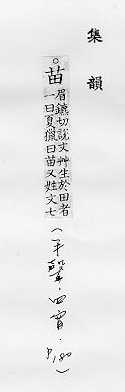 集韻
苗
眉鑣切說文艸生於田者
一曰夏獵曰苗又姓文七
(平聲.四宵.p.180)